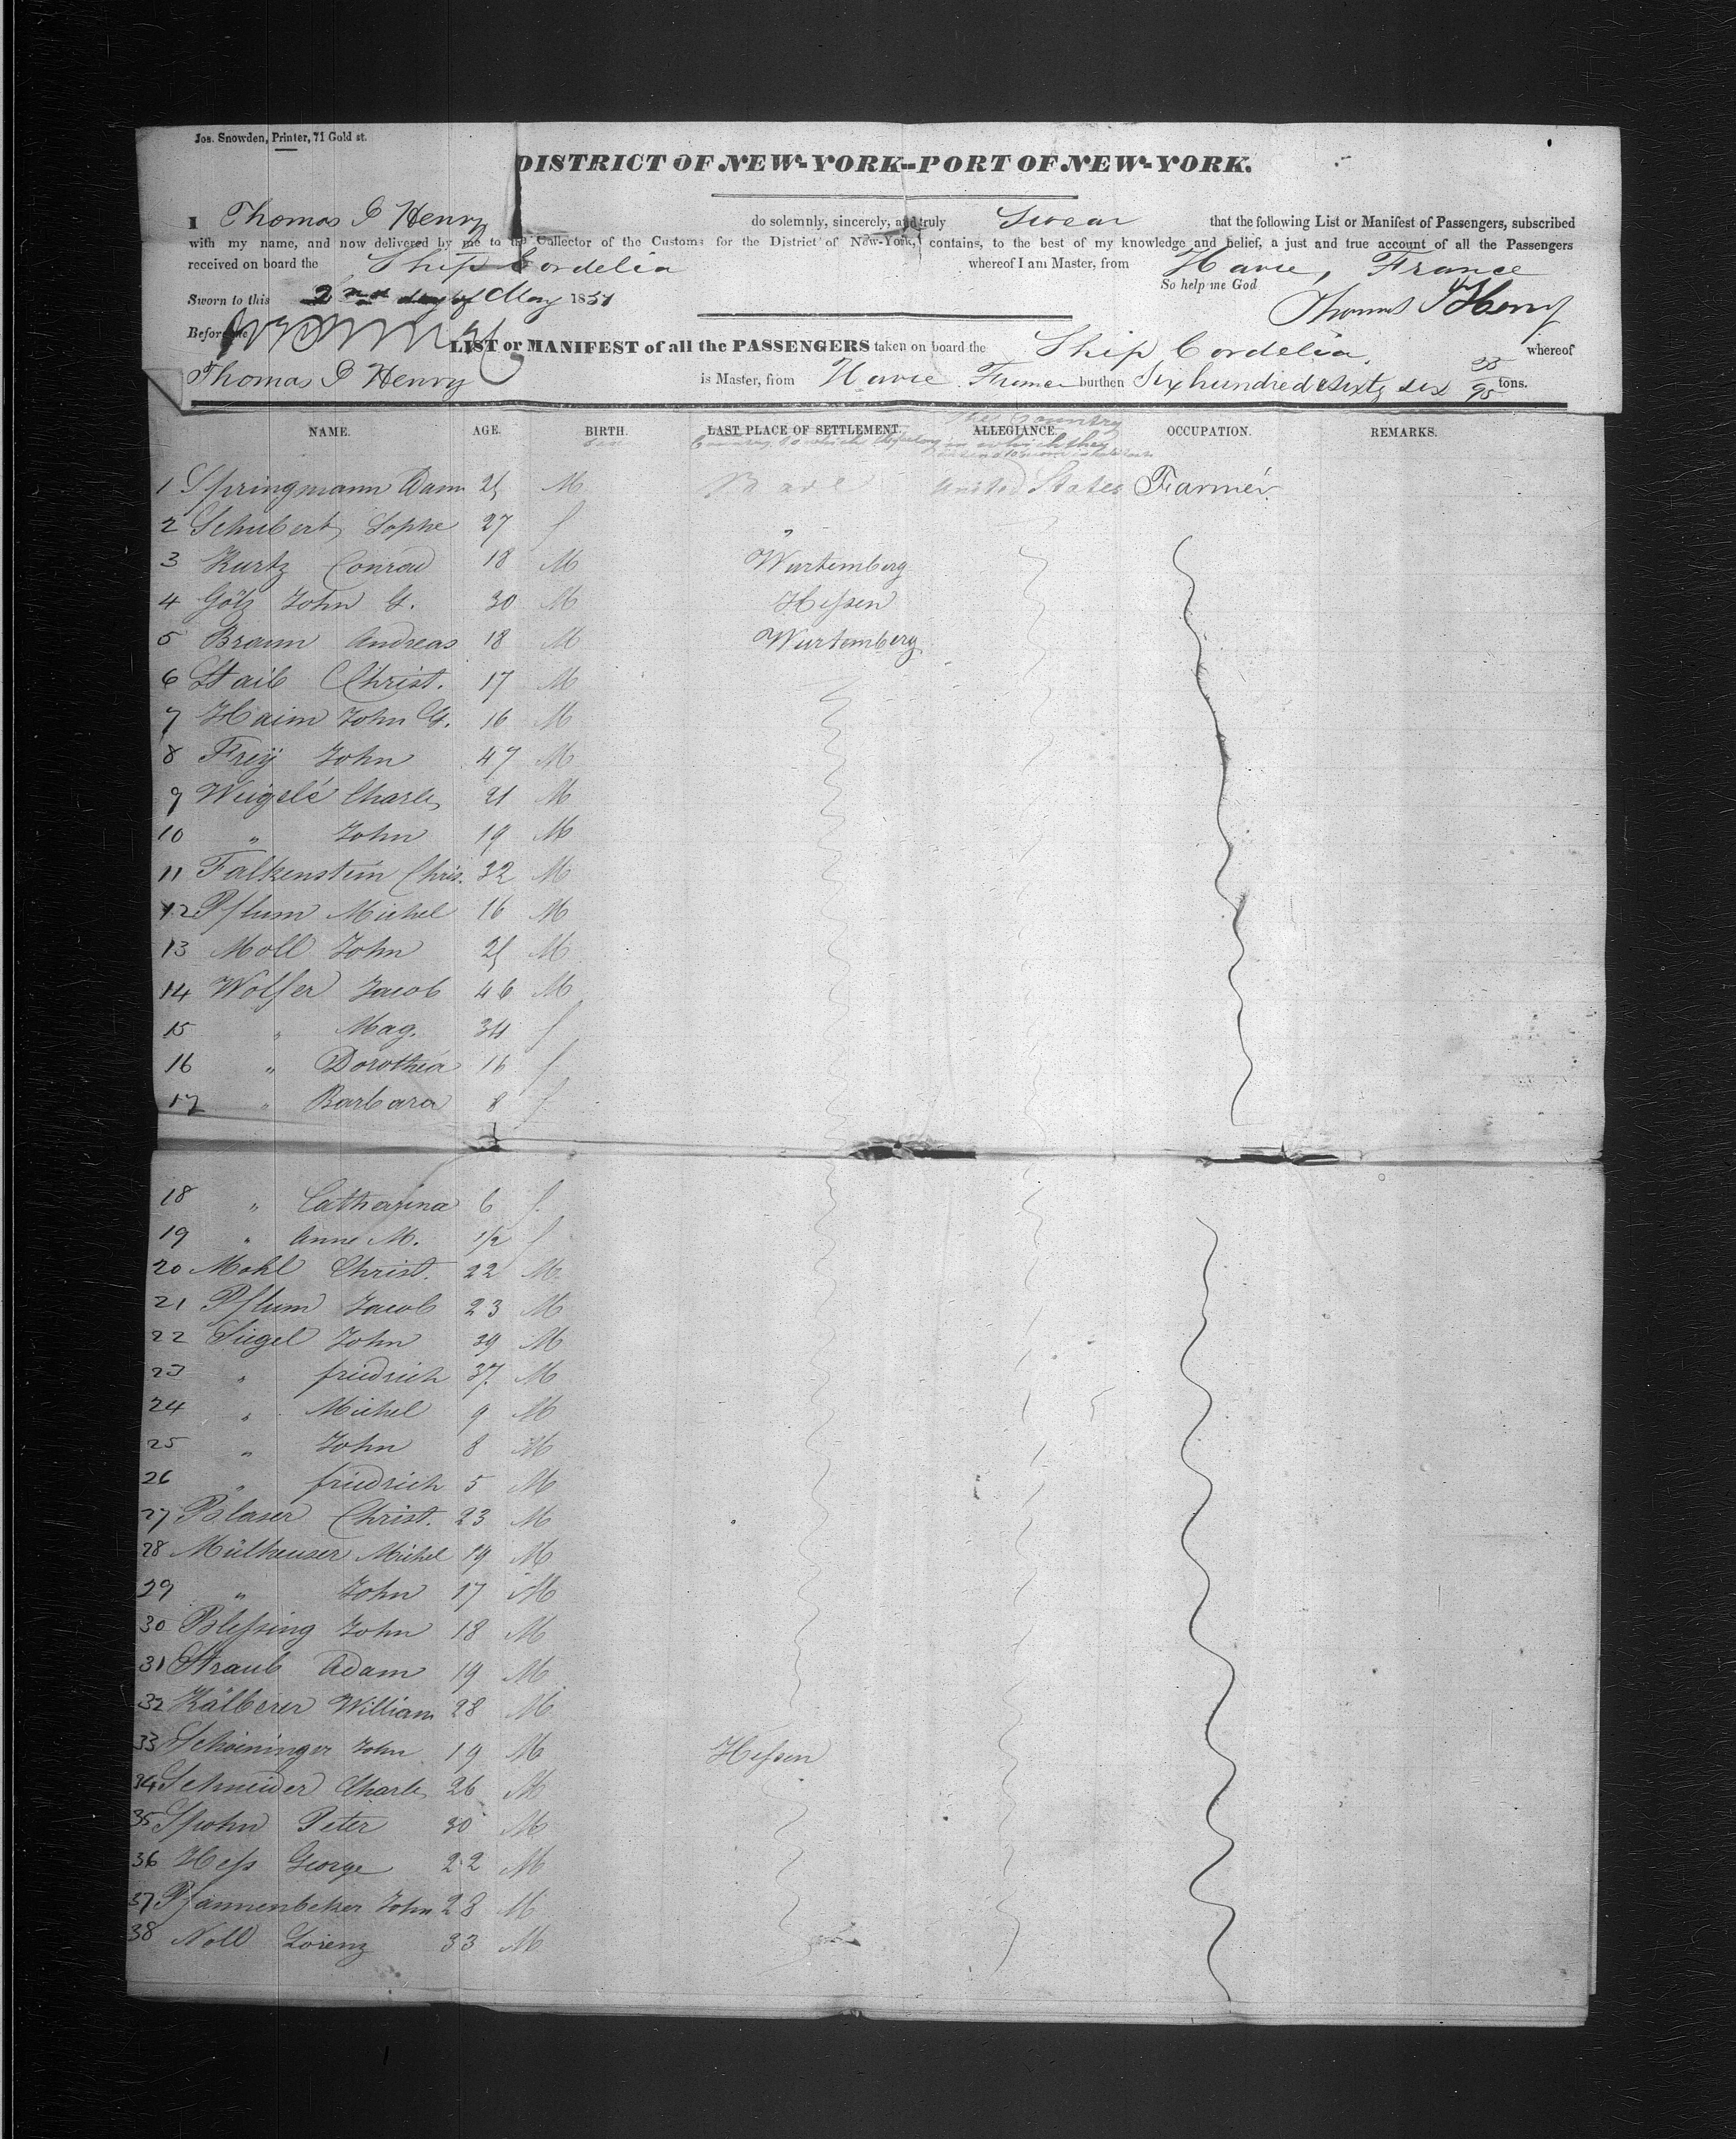 Jos. Snowden, Printer, 71 Gold st.
DISTRICT OF NEW-YORK--PORT OF NEW-YORK.
I Thomas P Henry do solemnly, sincerely, and truly Swear that the following List or Manifest of Passengers, subscribed
with my name, and now delivered by me to the Collector of the Customs for the District of New-York, contains, to the best of my knowledge and belief, a just and true account of all the Passengers
received on board the Ship Cordelia whereof I am Master, from Havre, France
So help me God
Sworn to this 2nd day of May 1851
Thomas P Henry
Before me
LIST or MANIFEST of all the PASSENGERS taken on board the Ship Cordelia, whereof
Thomas P Henry is Master, from Havre France burthen Six hundred & sixty six 35/95 tons.
NAME. AGE. BIRTH. LAST PLACE OF SETTLEMENT. ALLEGIANCE. OCCUPATION. REMARKS.
Sex Country to which they belong The Country in which they
1 Springmann 25 M United States Farmer
2 Schubert Sophe 27 f "
3 Kurtz Conrad 18 M Wurtemberg
4 Götz John G. 30 M Hessen
5 Braun Andreas 18 M Wurtemberg
6 Staib Christ. 17 M
7 Haim John G. 16 M
8 Frey John 47 M
9 Weigelé Charles 21 M
10 " John 19 M
11 Falkenstein Chris. 32 M
12 Pflum Michel 16 M
13 Moll John 25 M
14 Wolfer Jacob 46 M
15 " Mag. 34 f
16 " Dorothea 16 f
17 " Barbara 8 f
18 " Catharina 6 f
19 " Anne M. 1/2 f
20 Mohl Christ. 22 M
21 Pflum Jacob 23 M
22 Siegel John 39 M
23 " friedrich 37 M
24 " Michel 9 M
25 " John 8 M
26 " friedrich 5 M
27 Blaser Christ. 23 M
28 Mülheuser Michel 19 M
29 " John 17 M
30 Blessing John 18 M
31 Straub Adam 19 M
32 Kälberer William 28 M
33 Schoeninger John 19 M Hessen
34 Schneider Charles 26 M
35 Spohn Peter 30 M
36 Hess George 22 M
37 Pfannenbeker John 28 M
38 Noll Lorenz 33 M